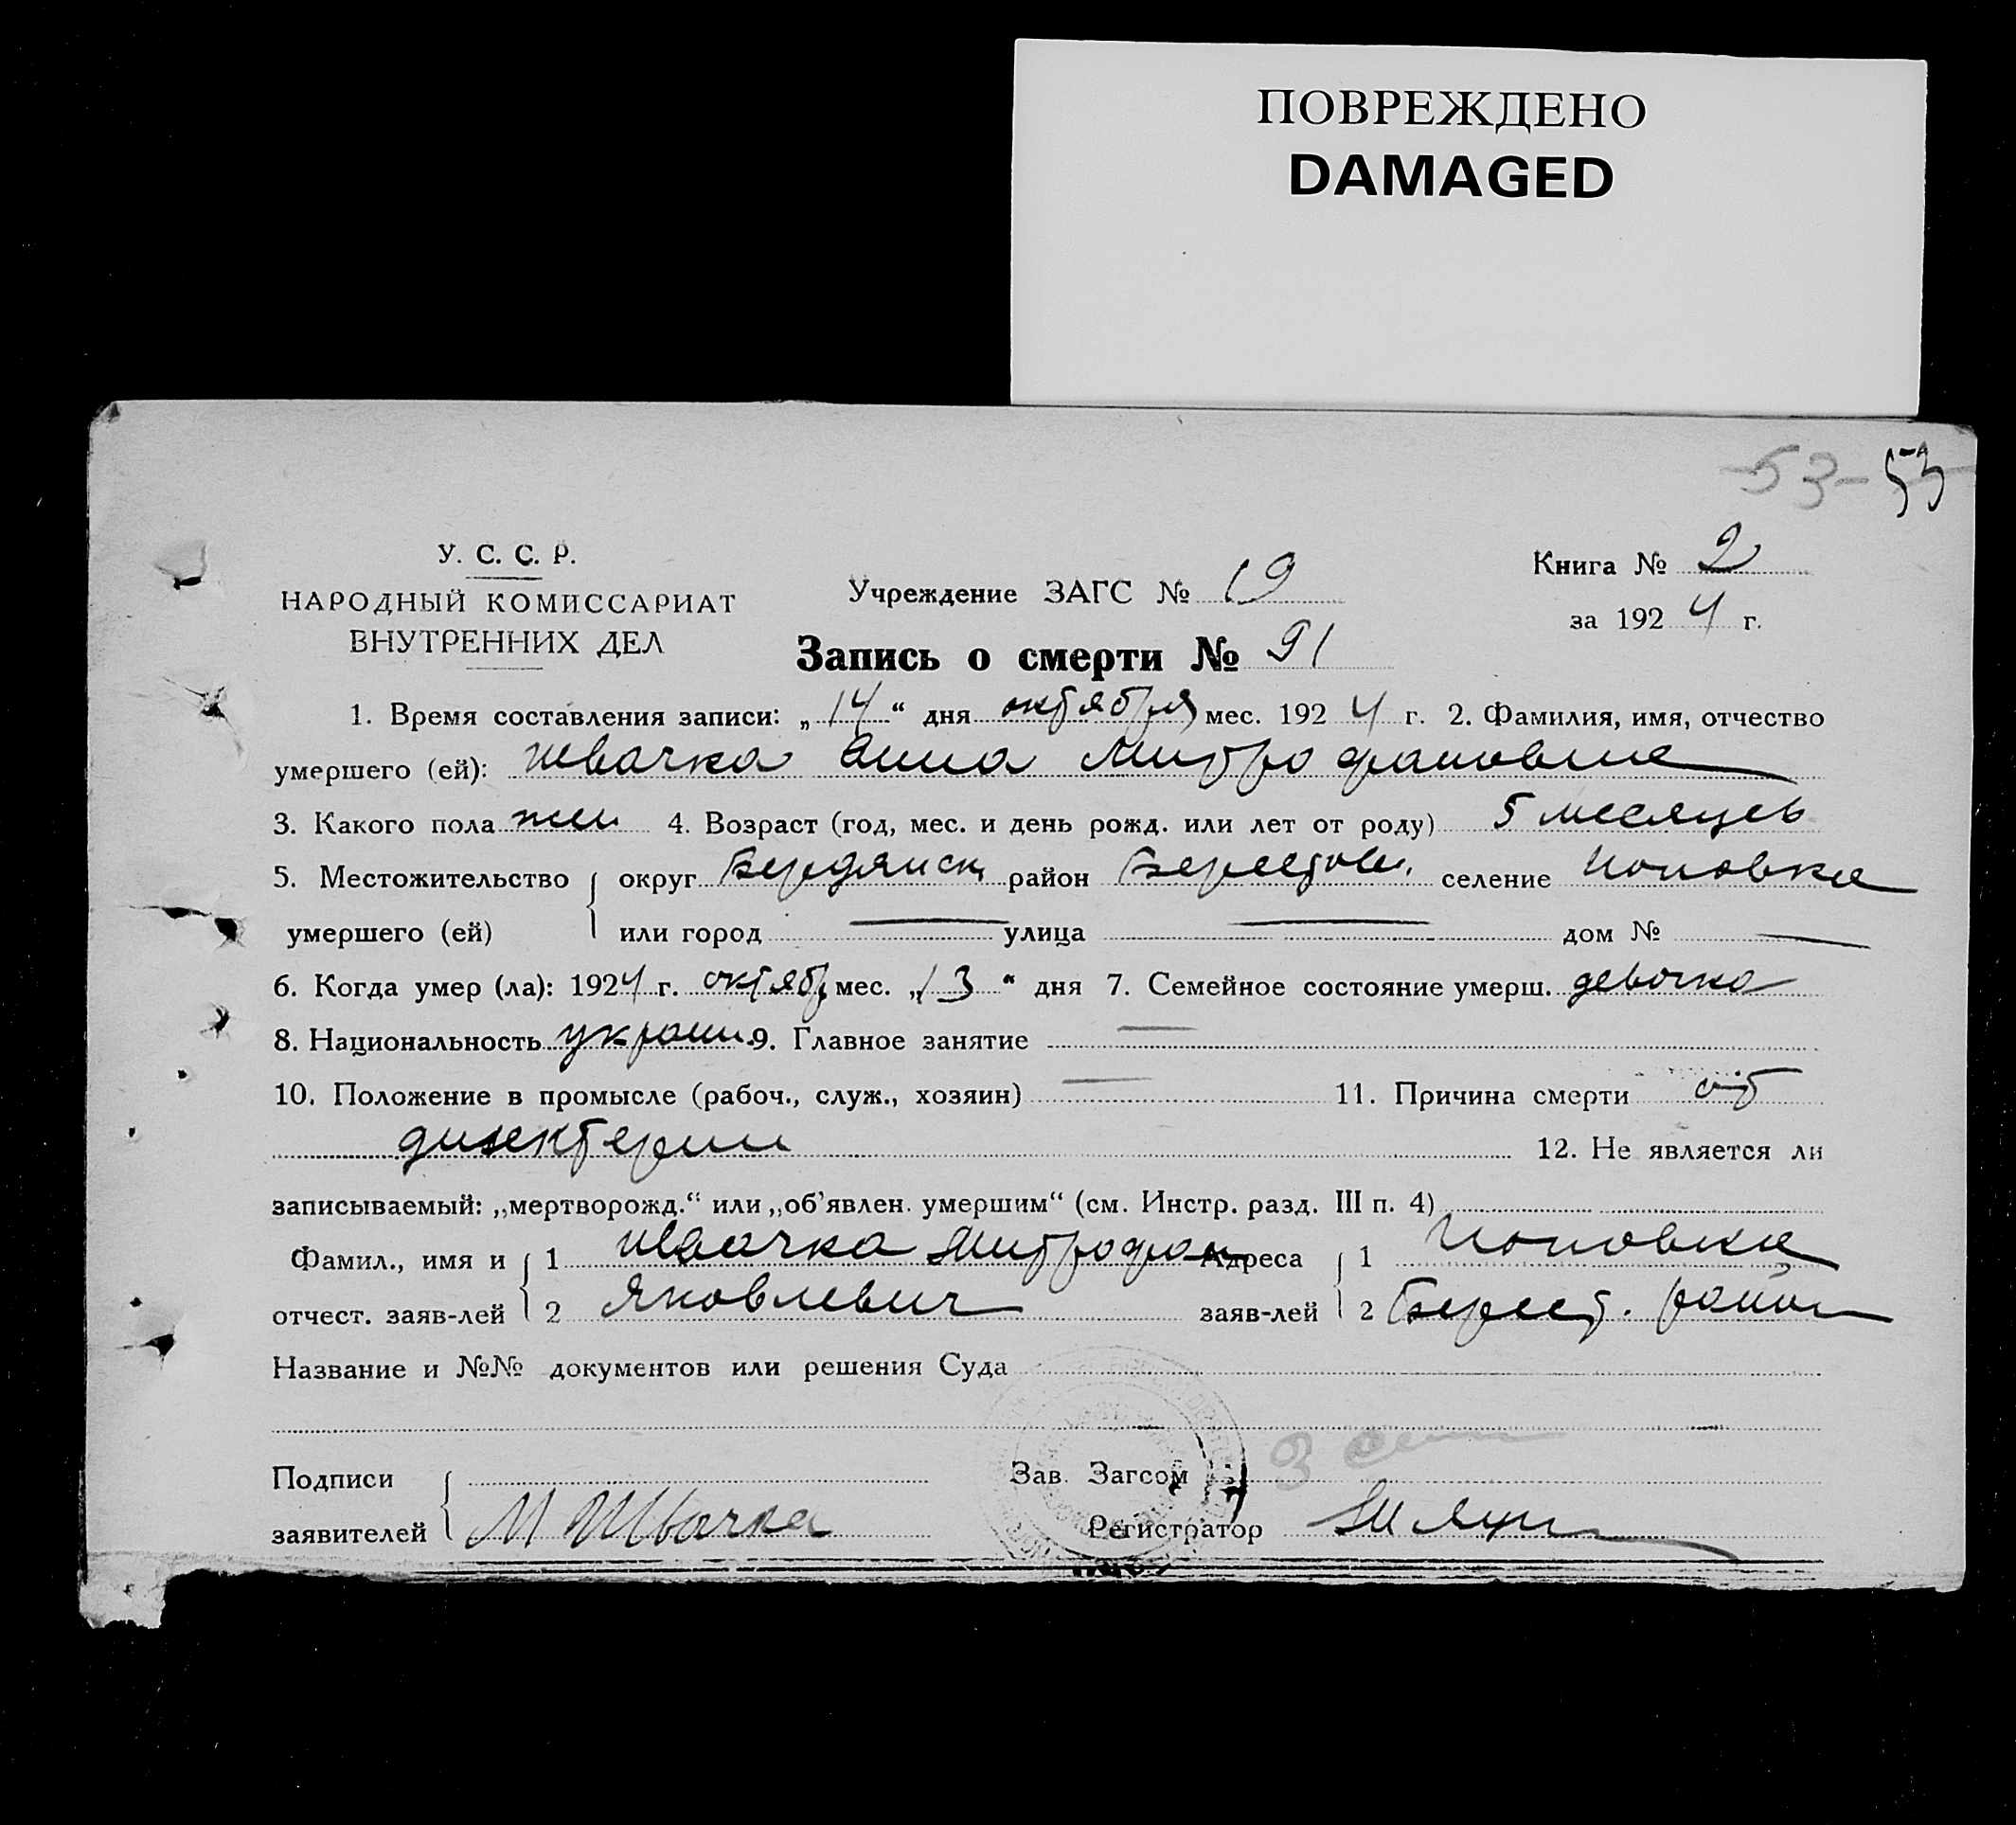 ПОВРЕЖДЕНО
DAMAGED
53- 53
У. С. С. Р.
НАРОДНЫЙ КОМИССАРИАТ
ВНУТРЕННИХ ДЕЛ
Учреждение ЗАГС № 19
Книга № 2
за 1924 г.
Запись о смерти № 91
1. Время составления записи: „14“ дня октября мес. 1924 г. 2. Фамилия, имя, отчество
умершего (ей): Швачка Анна Митрофановна
3. Какого пола жен 4. Возраст (год, мес. и день рожд. или лет от роду) 5 месяцев
5. Местожительство округ Бердянск район Берестов. селение Поповка
умершего (ей) или город — улица — дом № —
6. Когда умер (ла): 1924 г. октяб мес. „13“ дня 7. Семейное состояние умерш. девочка
8. Национальность украин 9. Главное занятие —
10. Положение в промысле (рабоч., служ., хозяин) — 11. Причина смерти от
12. Не является ли
записываемый: „мертворожд.“ или „об'явлен. умершим“ (см. Инстр. разд. III п. 4)
Фамил., имя и 1 Швачка Митрофан Адреса 1 Поповка
отчест. заяв-лей 2 Яковлевич заяв-лей 2 Берест. район
Название и №№ документов или решения Суда
Подписи Зав. Загсом
заявителей М Швачка Регистратор